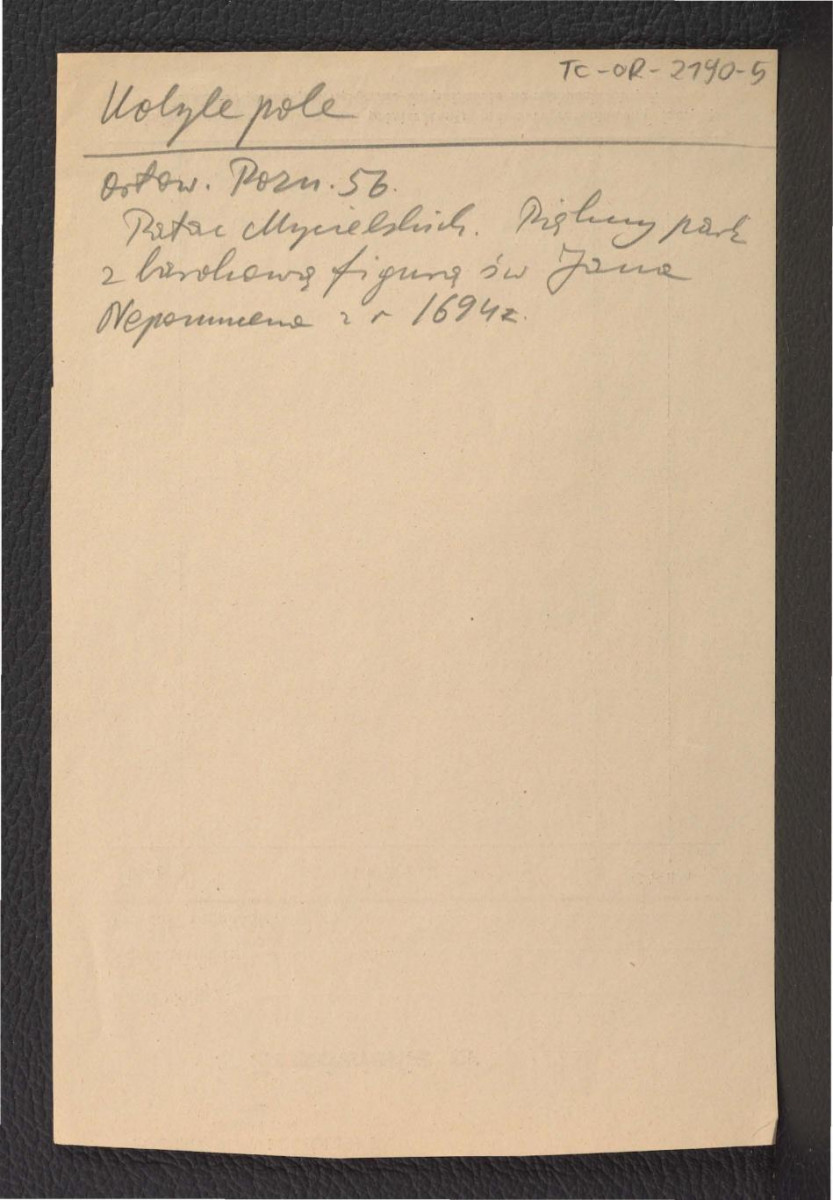 TC-OR-2190-5
Kobyle pole
Ostow. Pozn. 56.
Pałac Mycielskich. Piękny park
z barokową figurą św Jana
Nepomucena z r 1694 r.